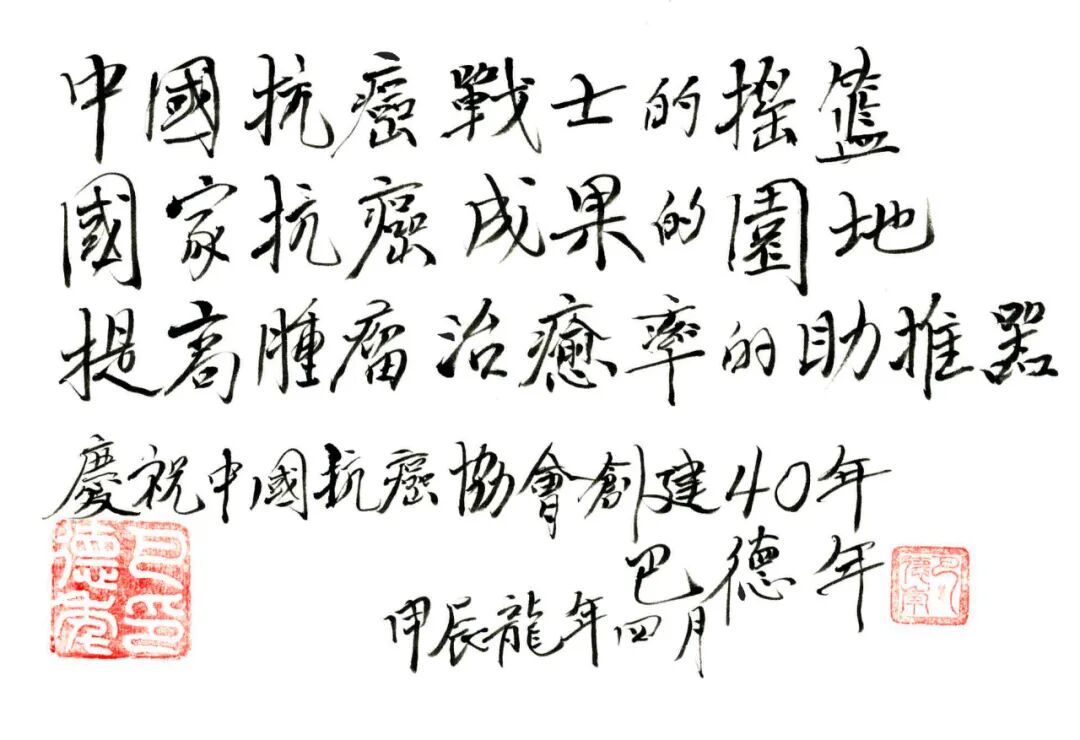 中國抗癌戰士的搖籃
國家抗癌成果的園地
提高腫瘤治癒率的助推器
慶祝中國抗癌協會創建40年
巴德年
甲辰龍年四月
巴印德年